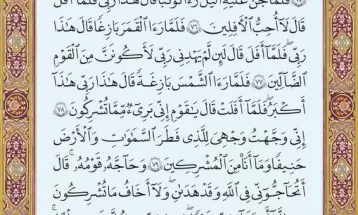 فَلَمَّا جَنَّ عَلَيْهِ ٱلَّيْلُ رَءَا كَوْكَبًا قَالَ هَٰذَا رَبِّي فَلَمَّآ أَفَلَ
قَالَ لَآ أُحِبُّ ٱلْءَافِلِينَ ٧٦ فَلَمَّا رَءَا ٱلْقَمَرَ بَازِغًا قَالَ هَٰذَا
رَبِّي فَلَمَّآ أَفَلَ قَالَ لَئِن لَّمْ يَهْدِنِي رَبِّي لَأَكُونَنَّ مِنَ ٱلْقَوْمِ
ٱلضَّآلِّينَ ٧٧ فَلَمَّا رَءَا ٱلشَّمْسَ بَازِغَةً قَالَ هَٰذَا رَبِّي هَٰذَآ
أَكْبَرُ فَلَمَّآ أَفَلَتْ قَالَ يَٰقَوْمِ إِنِّي بَرِيٓءٌ مِّمَّا تُشْرِكُونَ ٧٨
إِنِّي وَجَّهْتُ وَجْهِيَ لِلَّذِي فَطَرَ ٱلسَّمَٰوَٰتِ وَٱلْأَرْضَ
حَنِيفًا وَمَآ أَنَا۠ مِنَ ٱلْمُشْرِكِينَ ٧٩ وَحَآجَّهُۥ قَوْمُهُۥ ۚ قَالَ
أَتُحَٰٓجُّوٓنِّي فِي ٱللَّهِ وَقَدْ هَدَىٰنِ ۚ وَلَآ أَخَافُ مَا تُشْرِكُونَ